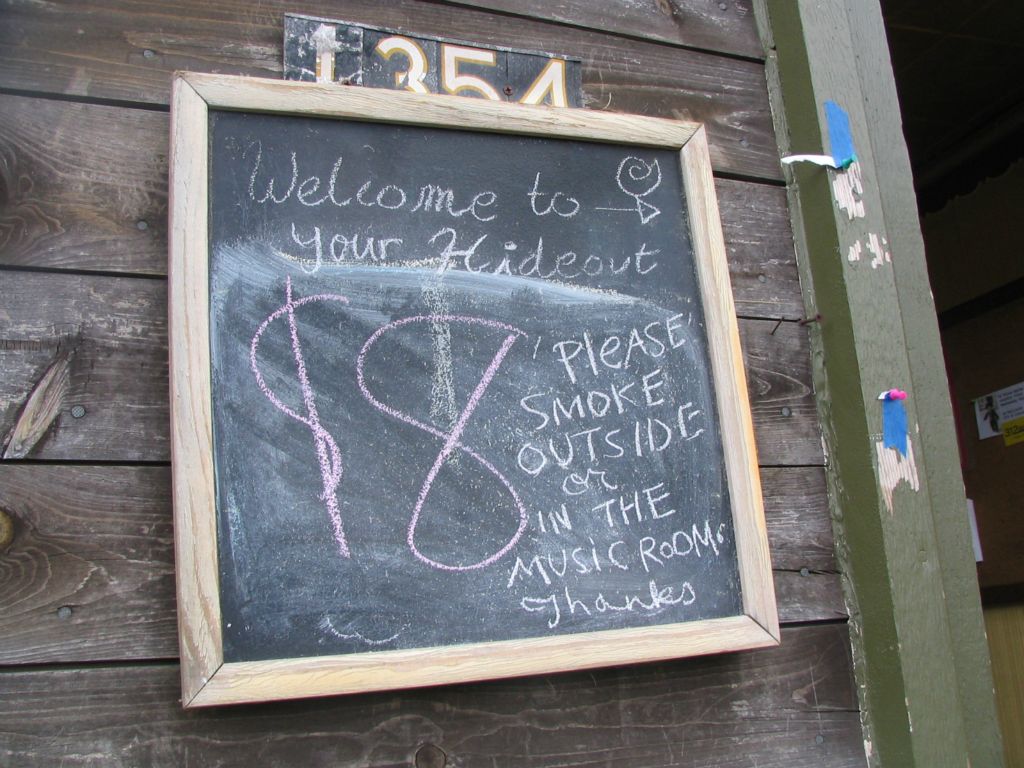 1354
Welcome to
your Hideout
$8
'PLEASE'
SMOKE
OUTSIDE
or
IN THE
MUSIC ROOM.
Thanks